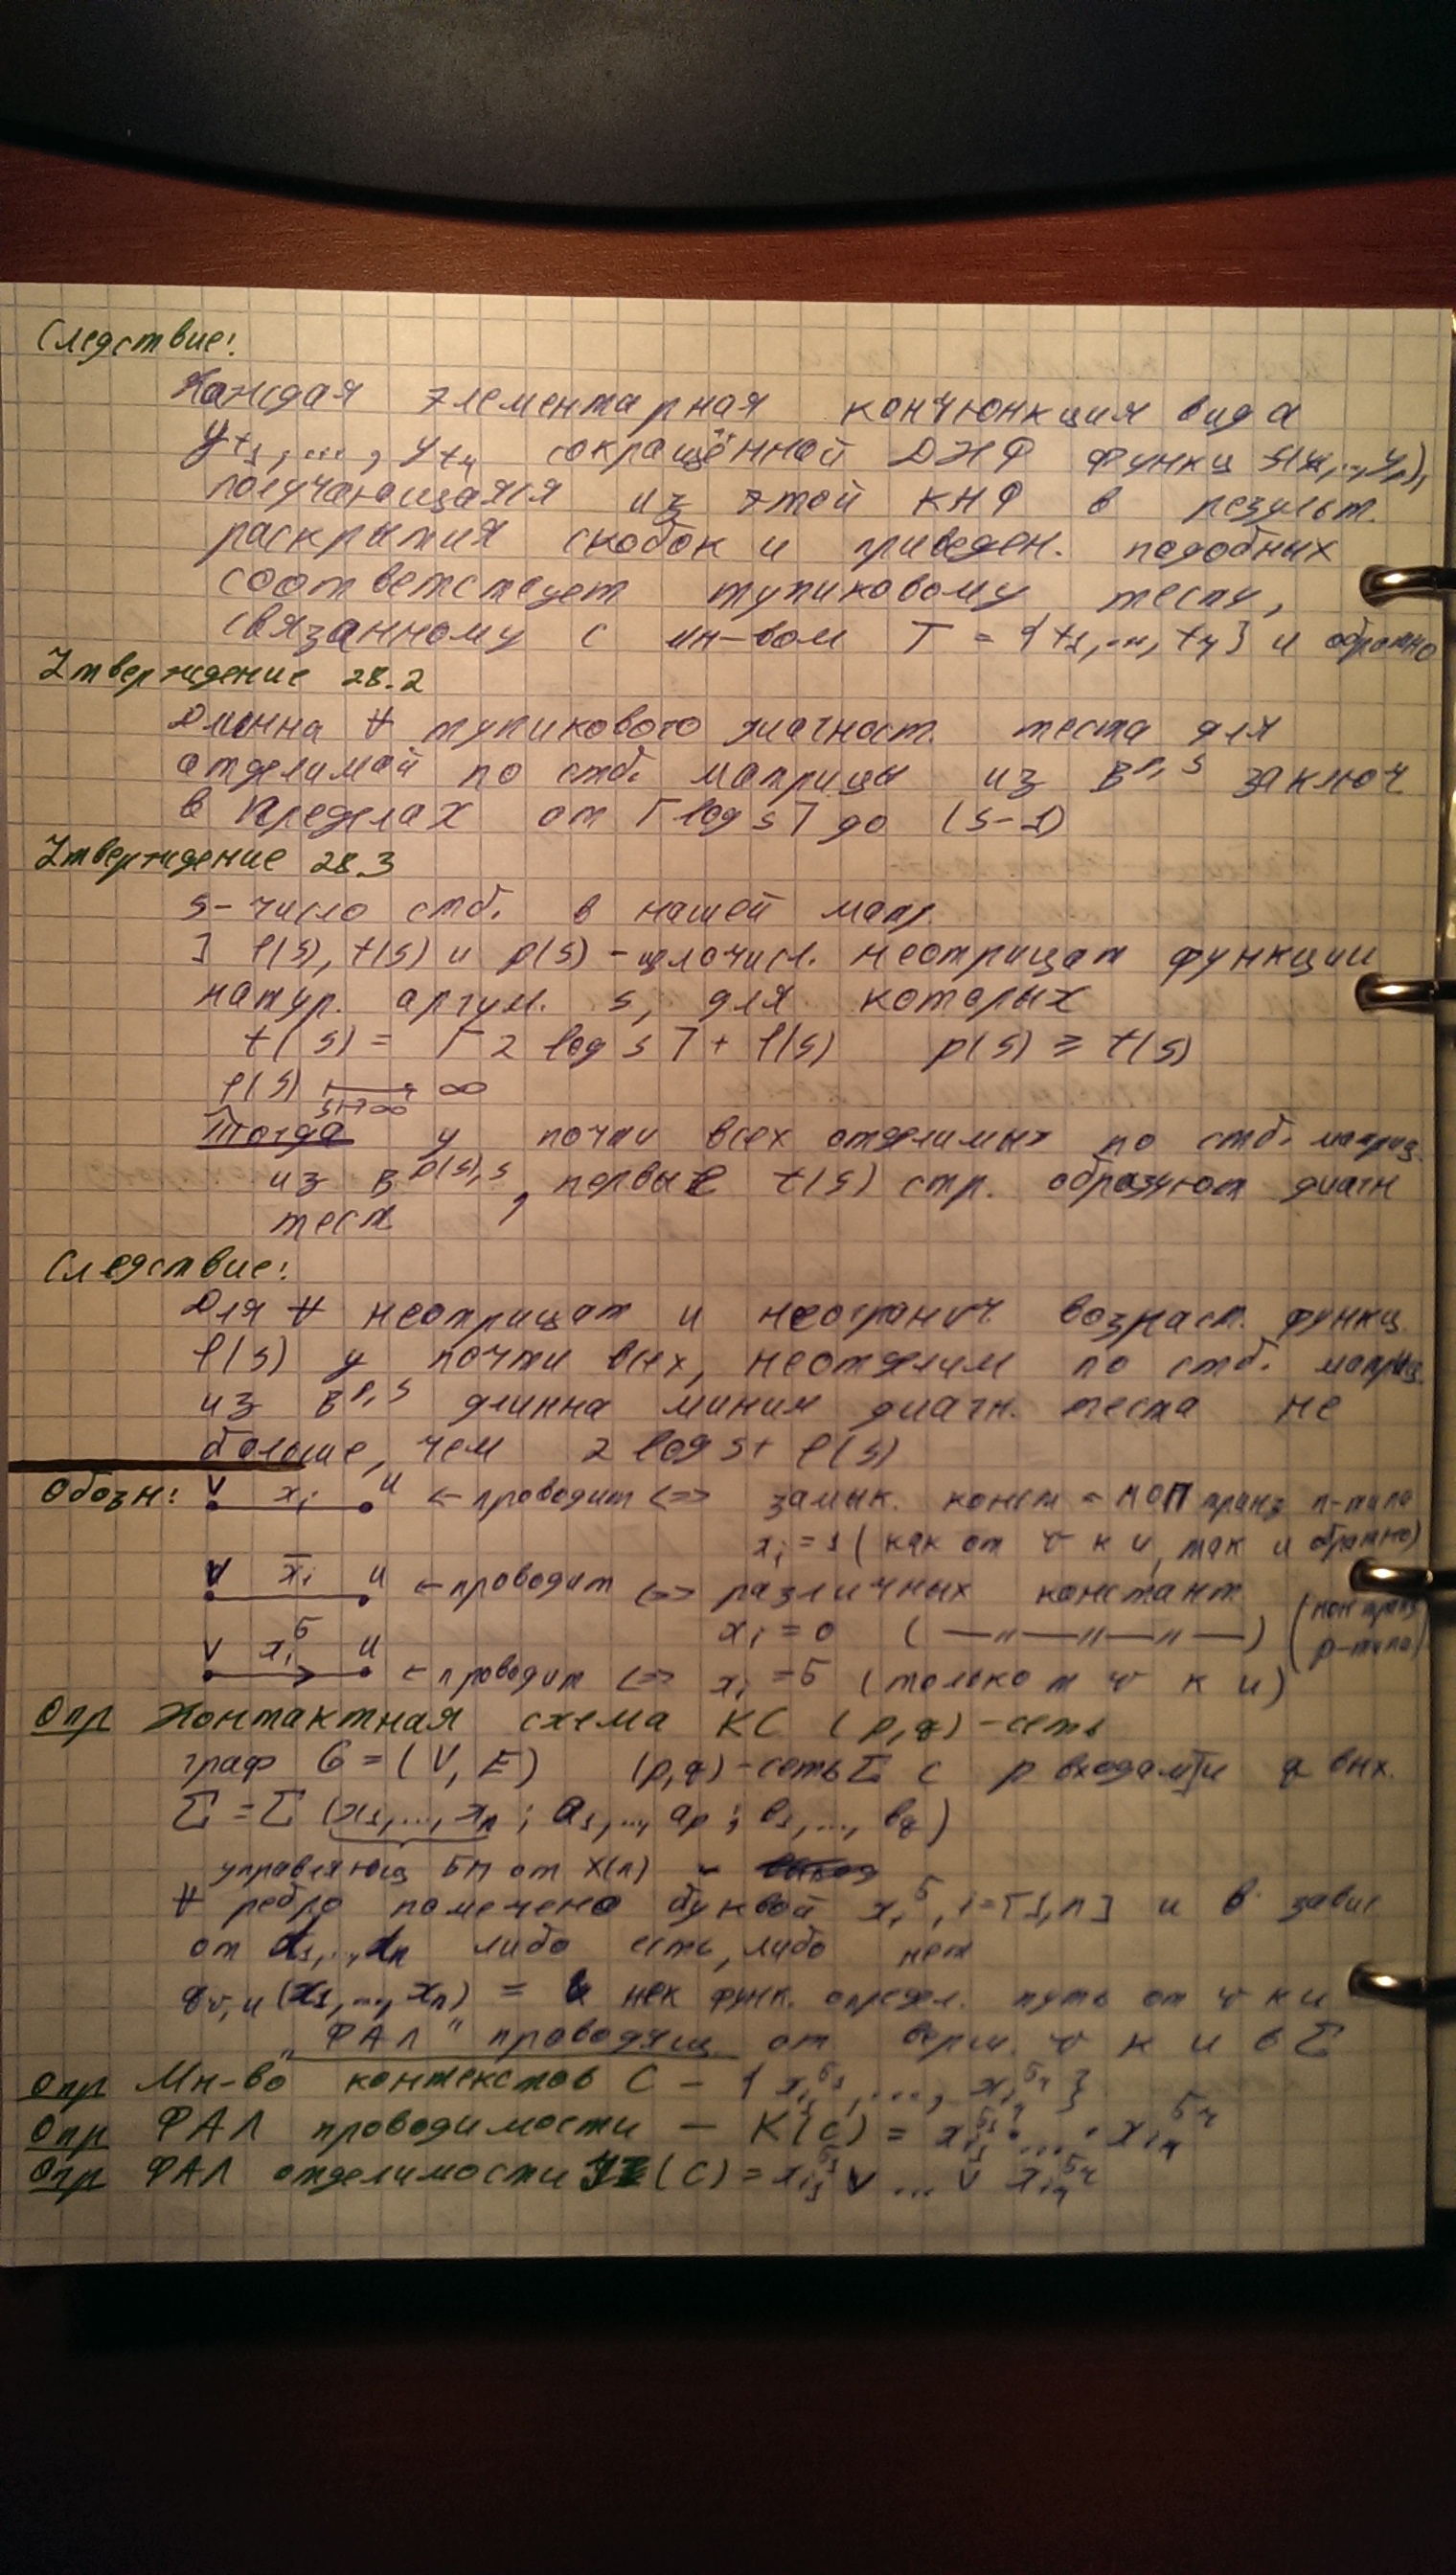 Следствие:
Каждая элементарная конъюнкция вида
y_{t1}, ..., y_{tч} сокращённой ДНФ функц f(y1,..,yp),
получающаяся из этой КНФ в результ.
раскрытия скобок и приведен. подобных
соответствует тупиковому тесту,
связанному с мн-вом T = {t1,..., tч} и обратно
Утверждение 28.2
Длинна ∀ тупикового диагност. теста для
отделимой по стб. матрицы из B^{p,s} заключ
в пределах от ⌈log s⌉ до (s-1)
Утверждение 28.3
s - число стб. в нашей матр.
] φ(s), t(s) и p(s) - целочисл. неотрицат функции
натур. аргум. s, для которых
t(s) = ⌈2 log s⌉ + φ(s) p(s) ≥ t(s)
φ(s) → ∞
s→∞
Тогда у почти всех отделимых по стб. матриц
из B^{p(s),s}, первые t(s) стр. образуют диагн
тест
Следствие:
Для ∀ неотрицат и неогранич. возраст. функц.
φ(s) у почти всех, неотделим по стб. матриц.
из B^{p,s} длинна миним диагн. теста не
больше, чем 2 log s + φ(s)
Обозн: v x_i u ← проводит <=> замык. конт - МОП транз n-типа
x_i = 1 (как от v к u, так и обратно)
v x̄_i u ← проводит <=> различных констант
x_i = 0 ( —"—"—"— ) (моп транз p-типа)
v x_i^σ u ← проводит <=> x_i = σ (только от v к u)
Опр Контактная схема КС (p,q) - сеть
граф G = (V, E) (p,q) - сеть Σ с p входами и q вых.
Σ = Σ (x1,..., xn ; a1,..., ap ; b1,..., bq)
управляющ БП от X(n) -
∀ ребро помечено буквой x_i^σ, i=[1,n] и в завис
от α1,..,αn либо есть, либо нет
g_{v,u}(x1,..., xn) = нек функ. определ. путь от v к u
"ФАЛ" проводящ. от верш. v к u в Σ
Опр Мн-во контекстов C - { x_{i1}^{σ1}, ..., x_{iч}^{σч} }
Опр ФАЛ проводимости - K(C) = x_{i1}^{σ1} · ... · x_{iч}^{σч}
Опр ФАЛ отделимости (C) = x_{i1}^{σ1} ∨ ... ∨ x_{iч}^{σч}